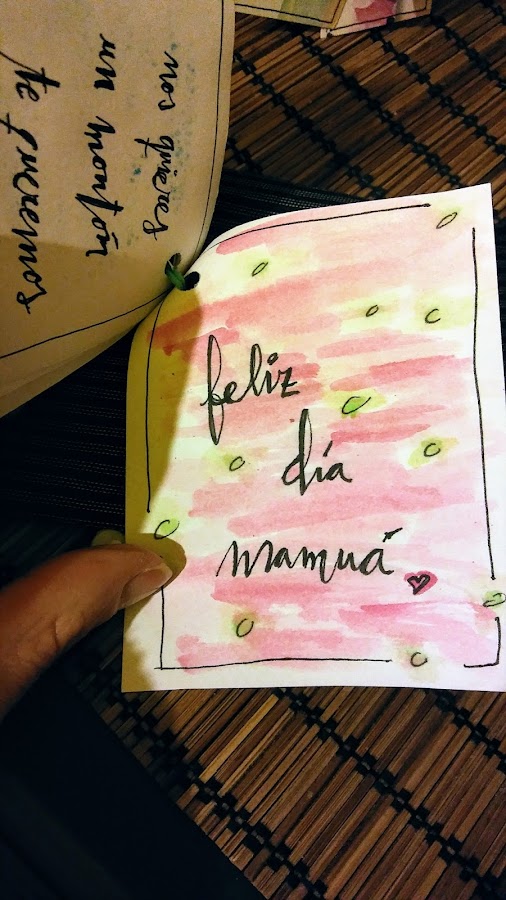 nos quieres
un montón
te queremos
feliz
día
mamuá